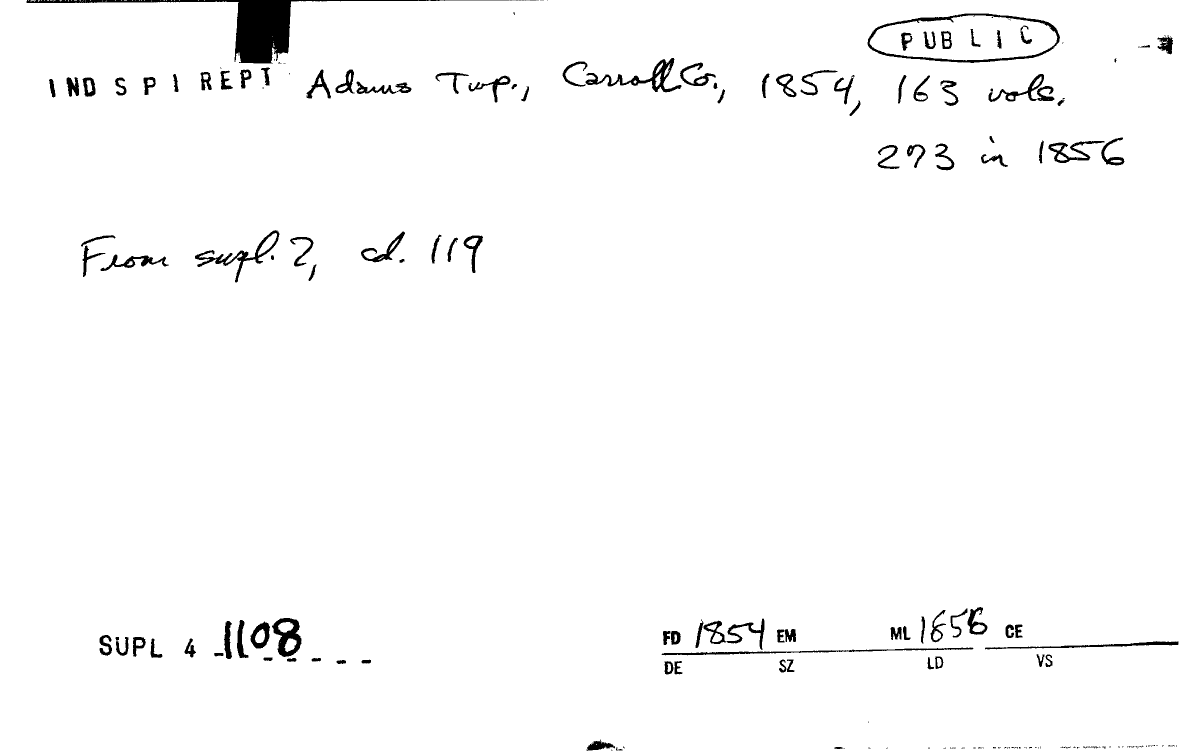 PUBLIC
INDSPIREPT Adams Twp., Carroll Co., 1854, 163 vols.
273 in 1856
From supl. 2, cd. 119
SUPL 4 1108
FD 1854 EM ML 1856 CE
DE SZ LD VS